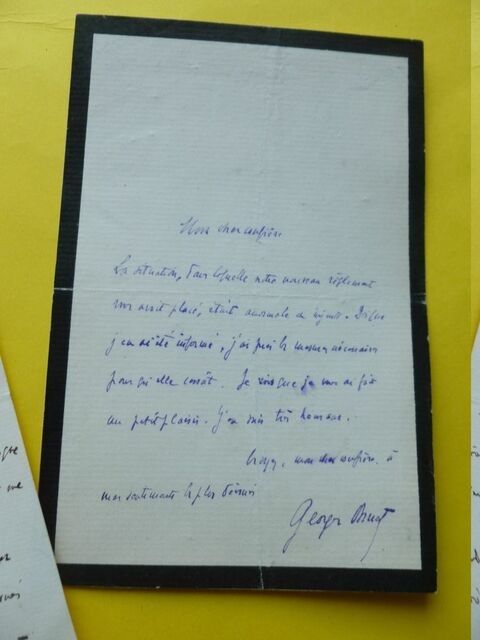 Mon cher confrère
La situation, dans laquelle notre nouveau règlement
vous avait placé, était anormale et injuste. Dès que
j'en ai été informé, j'ai pris les mesures nécessaires
pour qu'elle cessât. Je vois que je vous ai fait
un petit plaisir. J'en suis très heureux.
Croyez, mon cher confrère, à
mes sentiments les plus dévoués
Georges